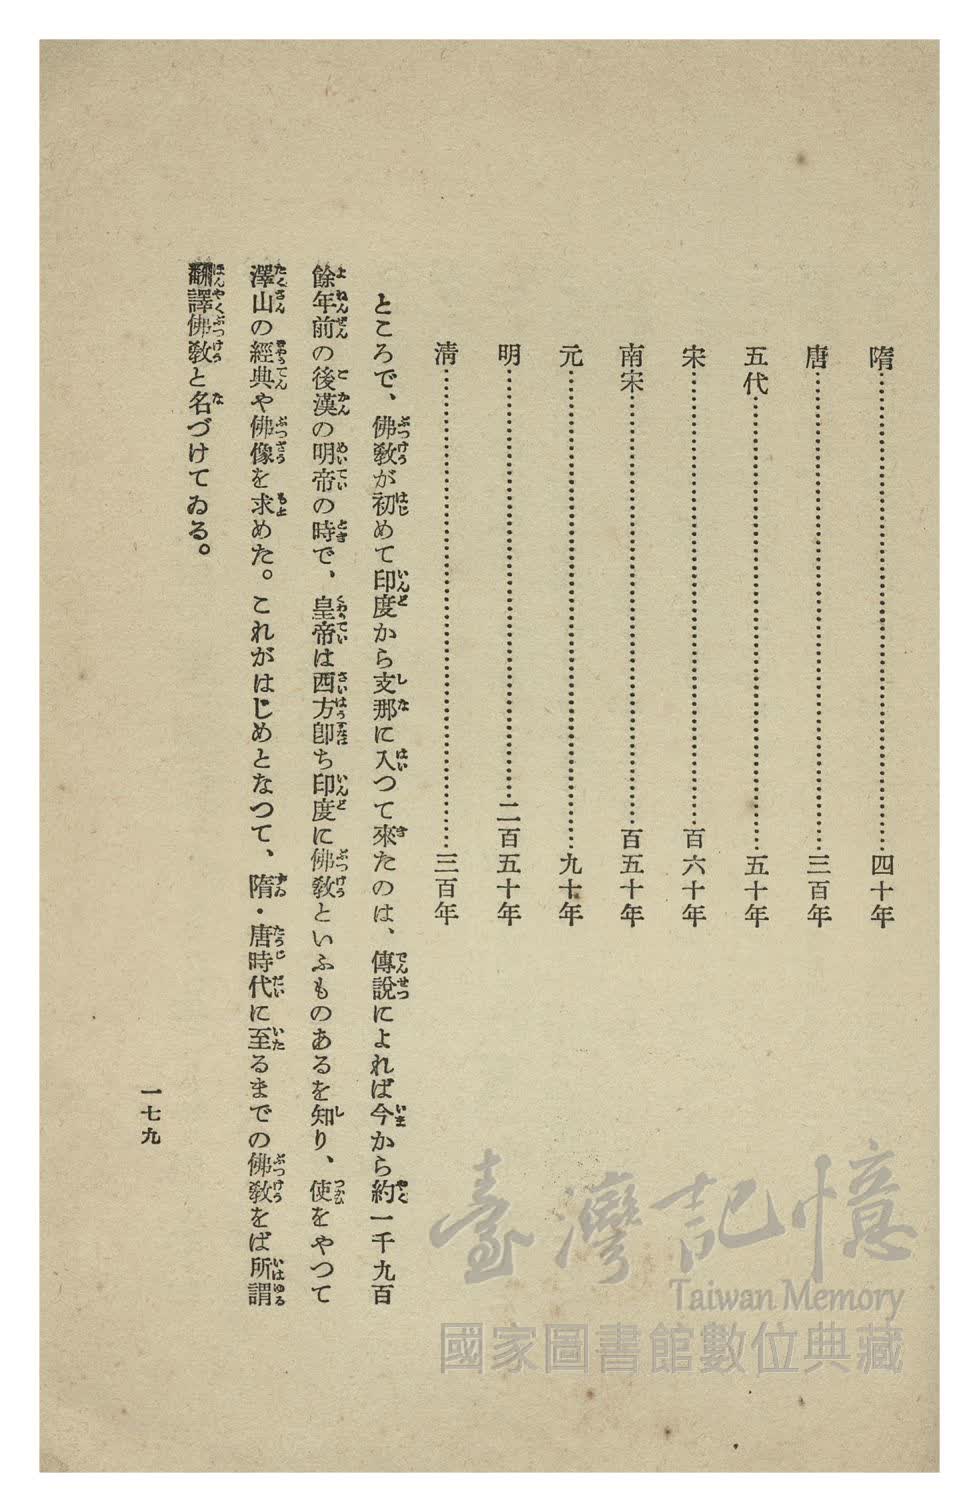 隋……………………………………………四十年
唐……………………………………………三百年
五代…………………………………………五十年
宋……………………………………………百六十年
南宋…………………………………………百五十年
元……………………………………………九十年
明……………………………………………二百五十年
淸……………………………………………三百年
ところで、佛敎が初めて印度から支那に入つて來たのは、傳說によれば今から約一千九百
餘年前の後漢の明帝の時で、皇帝は西方卽ち印度に佛敎といふものあるを知り、使をやつて
澤山の經典や佛像を求めた。これがはじめとなつて、隋・唐時代に至るまでの佛敎をば所謂
飜譯佛敎と名づけてゐる。
一七九
臺灣記憶
Taiwan Memory
國家圖書館數位典藏